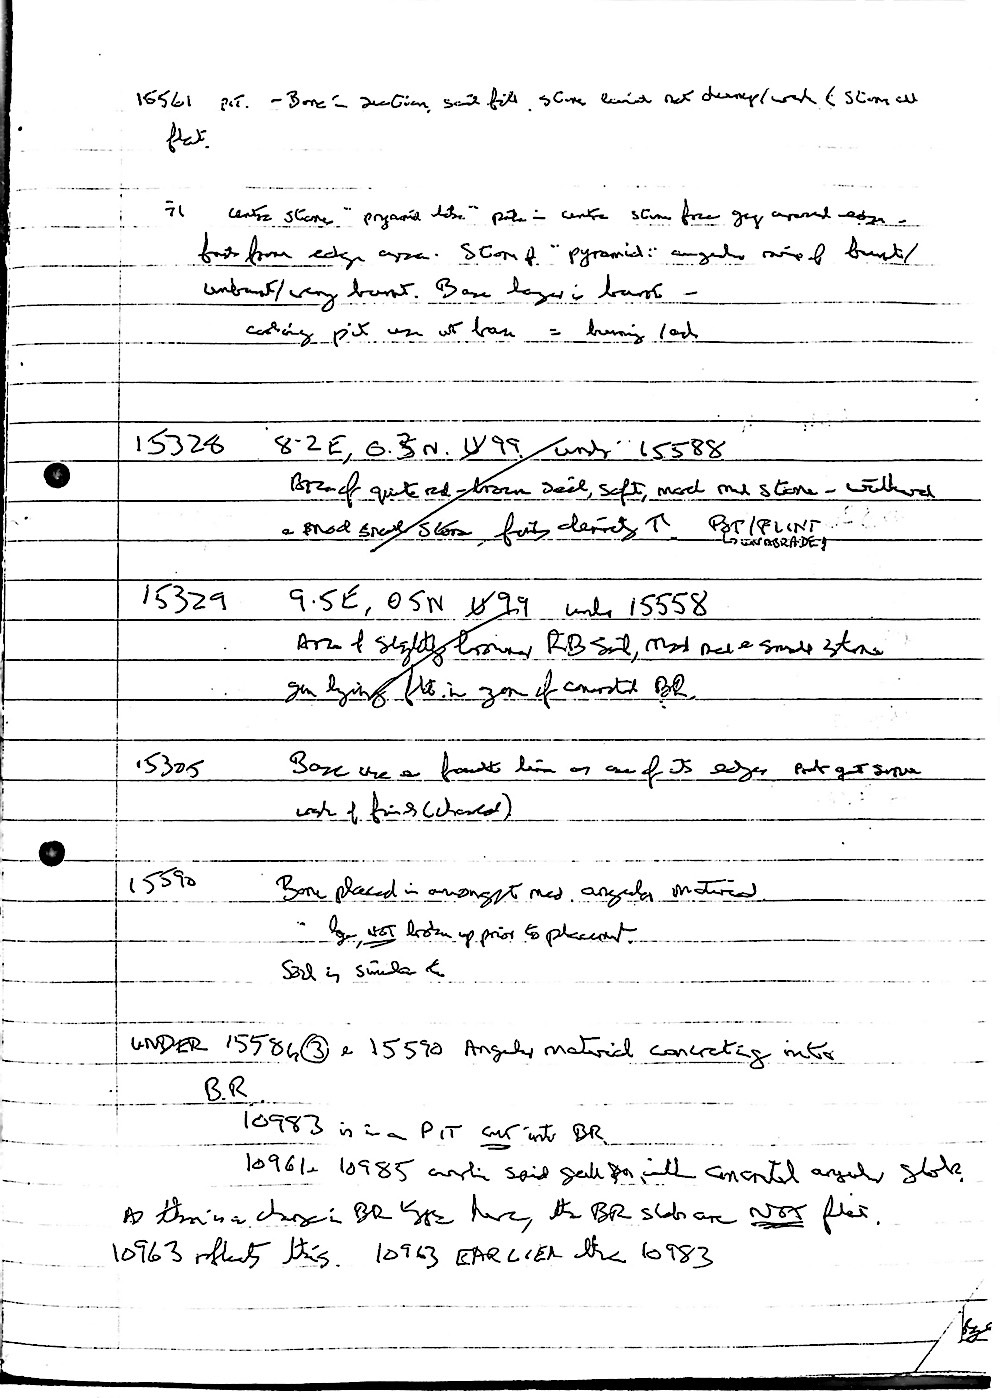 15561 PIT. - Bone in section, soil fill, stone laid not dump/wash & stone all
flat.
centre stone "pryamid like" pile in centre stone free gap around edge -
finds from edge area. Stone of "pyramid": angular mix of burnt/
unburnt/very burnt. Base layer is burnt -
cooking pit use at base = burning /ash
15328 8.2E, 0.3N. 199 under 15588
Area of quite red-brown soil, soft, mod med stone - withered
& mod small stone, finds density ↑. POT/FLINT
↳ UNABRADED
15329 9.5E, 05N 199 under 15558
Area of slightly browner RB soil, mod med & small stone
gen lying flat in zone of concreted BR.
15305 Base use a fault line as one of its edges
wash of finds (charcoal)
15590 Bone placed in amongst med. angular material
" lge, NOT broken up prior to placement.
Soil is similar to
UNDER 15584, ③ & 15590 Angular material concreting into
B.R.
10983 is in a PIT cut into BR
10961 & 10985 with concreted angular slabs.
As there is a change in BR type here, the BR slabs are NOT flat.
10963 reflects this. 10963 EARLIER than 10983